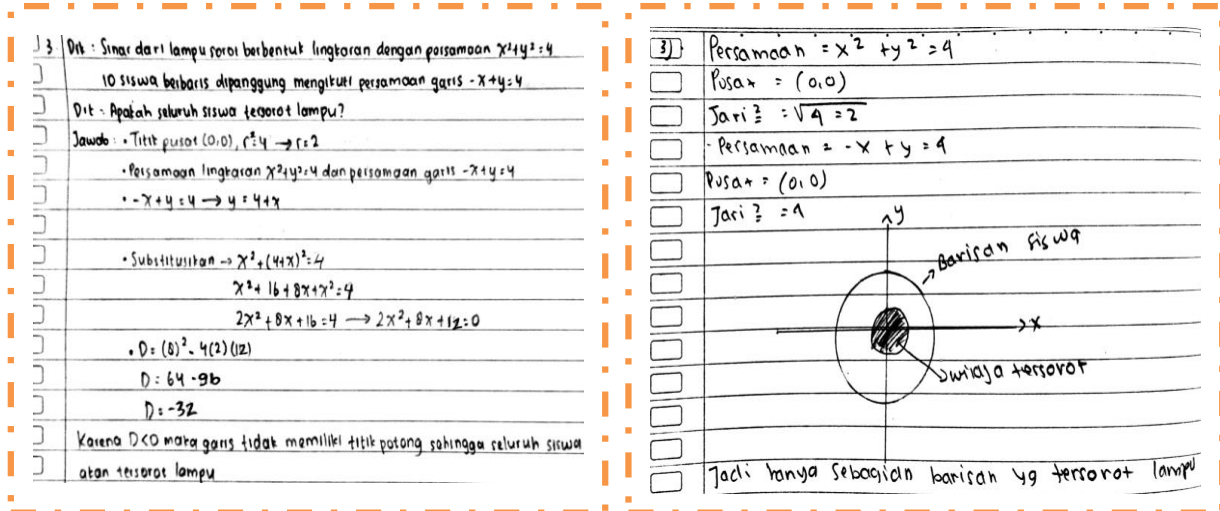 3. Dik : Sinar dari lampu sorot berbentuk lingkaran dengan persamaan x²+y²=4
10 siswa berbaris dipanggung mengikuti persamaan garis -x+y=4
Dit : Apakah seluruh siswa tersorot lampu?
Jawab : • Titik pusat (0,0), r²=4 → r=2
• Persamaan lingkaran x²+y²=4 dan persamaan garis -x+y=4
• -x+y=4 → y=4+x
• Substitusikan → x²+(4+x)²=4
x²+16+8x+x²=4
2x²+8x+16=4 → 2x²+8x+12=0
• D=(8)²-4(2)(12)
D=64-96
D=-32
Karena D<0 maka garis tidak memiliki titik potong sehingga seluruh siswa
akan tersorot lampu
3) Persamaan = x² + y² = 4
Pusat = (0,0)
Jari² = √4 = 2
- Persamaan = -x + y = 4
Pusat = (0,0)
Jari² = 4
y
Barisan siswa
x
tersorot
Jadi hanya sebagian barisan yg tersorot lampu